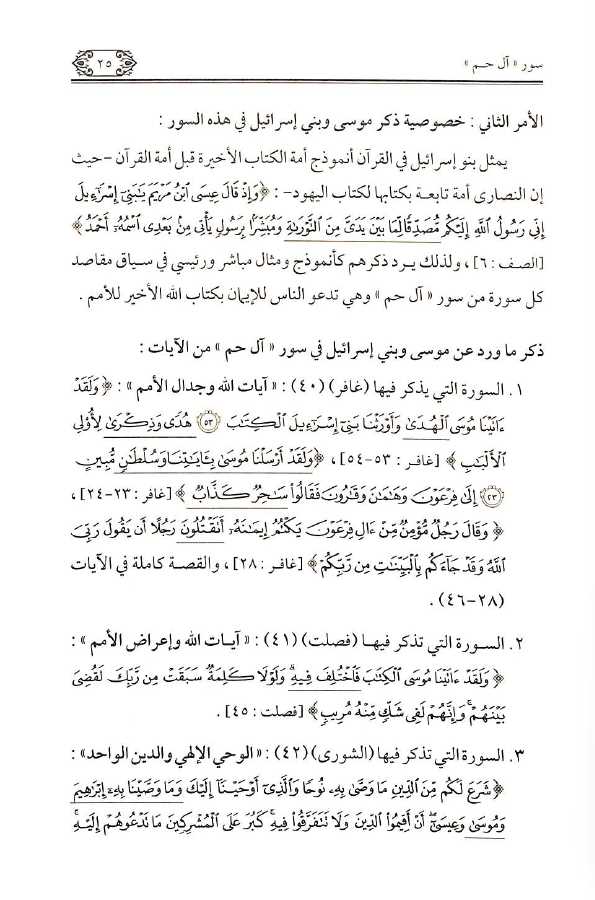 سور « آل حم »
٢٥
الأمر الثاني : خصوصية ذكر موسى وبني إسرائيل في هذه السور :
يمثل بنو إسرائيل في القرآن أنموذج أمة الكتاب الأخيرة قبل أمة القرآن -حيث
إن النصارى أمة تابعة بكتابها لكتاب اليهود- : ﴿ وَإِذْ قَالَ عِيسَى ٱبْنُ مَرْيَمَ يَٰبَنِىٓ إِسْرَٰٓءِيلَ
إِنِّى رَسُولُ ٱللَّهِ إِلَيْكُم مُّصَدِّقًا لِّمَا بَيْنَ يَدَىَّ مِنَ ٱلتَّوْرَىٰةِ وَمُبَشِّرًۢا بِرَسُولٍ يَأْتِى مِنۢ بَعْدِى ٱسْمُهُۥٓ أَحْمَدُ ﴾
[الصف : ٦] ، ولذلك يرد ذكرهم كأنموذج ومثال مباشر ورئيسي في سياق مقاصد
كل سورة من سور « آل حم » وهي تدعو الناس للإيمان بكتاب الله الأخير للأمم .
ذكر ما ورد عن موسى وبني إسرائيل في سور « آل حم » من الآيات :
١. السورة التي يذكر فيها (غافر) (٤٠) : « آيات الله وجدال الأمم » : ﴿ وَلَقَدْ
ءَاتَيْنَا مُوسَى ٱلْهُدَىٰ وَأَوْرَثْنَا بَنِىٓ إِسْرَٰٓءِيلَ ٱلْكِتَٰبَ ۝٥٣ هُدًى وَذِكْرَىٰ لِأُو۟لِى
ٱلْأَلْبَٰبِ ﴾ [غافر : ٥٣-٥٤] ، ﴿ وَلَقَدْ أَرْسَلْنَا مُوسَىٰ بِـَٔايَٰتِنَا وَسُلْطَٰنٍ مُّبِينٍ
۝٢٣ إِلَىٰ فِرْعَوْنَ وَهَٰمَٰنَ وَقَٰرُونَ فَقَالُوا۟ سَٰحِرٌ كَذَّابٌ ﴾ [غافر : ٢٣-٢٤] ،
﴿ وَقَالَ رَجُلٌ مُّؤْمِنٌ مِّنْ ءَالِ فِرْعَوْنَ يَكْتُمُ إِيمَٰنَهُۥٓ أَتَقْتُلُونَ رَجُلًا أَن يَقُولَ رَبِّىَ
ٱللَّهُ وَقَدْ جَآءَكُم بِٱلْبَيِّنَٰتِ مِن رَّبِّكُمْ ﴾ [غافر : ٢٨] ، والقصة كاملة في الآيات
(٢٨-٤٦) .
٢. السورة التي تذكر فيها (فصلت) (٤١) : « آيات الله وإعراض الأمم » :
﴿ وَلَقَدْ ءَاتَيْنَا مُوسَى ٱلْكِتَٰبَ فَٱخْتُلِفَ فِيهِ ۗ وَلَوْلَا كَلِمَةٌ سَبَقَتْ مِن رَّبِّكَ لَقُضِىَ
بَيْنَهُمْ ۚ وَإِنَّهُمْ لَفِى شَكٍّ مِّنْهُ مُرِيبٍ ﴾ [فصلت : ٤٥] .
٣. السورة التي تذكر فيها (الشورى) (٤٢) : « الوحي الإلهي والدين الواحد» :
﴿ شَرَعَ لَكُم مِّنَ ٱلدِّينِ مَا وَصَّىٰ بِهِۦ نُوحًا وَٱلَّذِىٓ أَوْحَيْنَآ إِلَيْكَ وَمَا وَصَّيْنَا بِهِۦٓ إِبْرَٰهِيمَ
وَمُوسَىٰ وَعِيسَىٰٓ ۖ أَنْ أَقِيمُوا۟ ٱلدِّينَ وَلَا تَتَفَرَّقُوا۟ فِيهِ ۚ كَبُرَ عَلَى ٱلْمُشْرِكِينَ مَا تَدْعُوهُمْ إِلَيْهِ ۚ